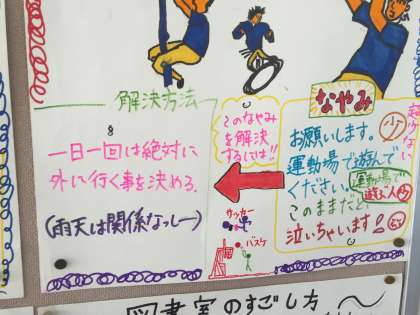 なやみ
少
お願いします。
運動場で遊んで
ください。
運動場で
遊ぶ人少
このままだと
泣いちゃいます!
このなやみ
を解決
するには!!
解決方法
一日一回は絶対に
外に行く事を決める。
(雨天は関係なっしー)
サッカー
バスケ
図書室のすごし方